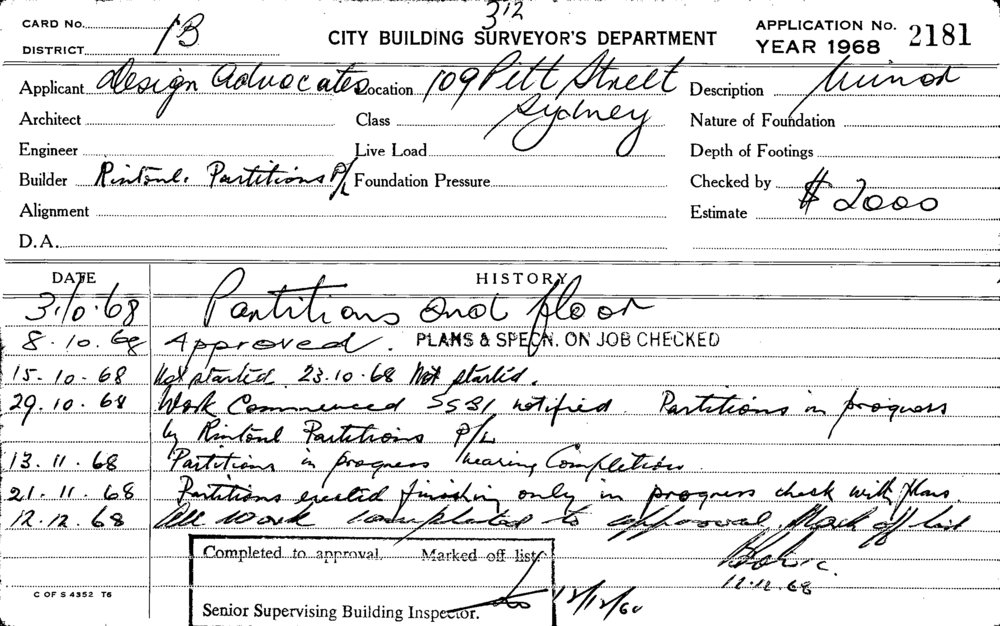 312
CARD No. 1B
DISTRICT
CITY BUILDING SURVEYOR'S DEPARTMENT
APPLICATION No. 2181
YEAR 1968
Applicant Design Advocates Location 109 Pitt Street Description Minor
Architect Class Sydney Nature of Foundation
Engineer Live Load Depth of Footings
Builder Rintoul. Partitions P/L Foundation Pressure Checked by
Alignment Estimate $2000
D.A.
DATE HISTORY
3.10.68 Partitions and floor
8.10.68 Approved. PLANS & SPECN. ON JOB CHECKED
15.10.68 Not started 23.10.68 Not started.
29.10.68 Work Commenced SSBI notified. Partitions in progress
by Rintoul Partitions P/L
13.11.68 Partitions in progress nearing Completion.
21.11.68 Partitions erected finishing only in progress check with plans.
12.12.68 All work completed to approval. Mark off list
12.12.68
Completed to approval. Marked off list.
C OF S 4352 T6
Senior Supervising Building Inspector.